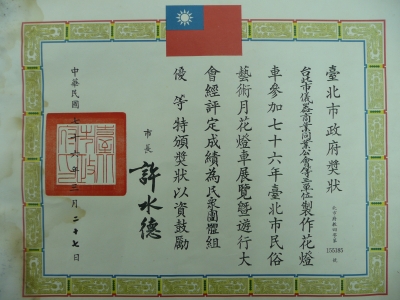 臺北市政府獎狀
北市務社四字第
155385
號
台北市儀器商業同業公會等三單位製作花燈
車參加七十六年臺北市民俗
藝術月花燈車展覽暨遊行大
會經評定成績為民眾團體組
優等特頒獎狀以資鼓勵
市長許水德
中華民國七十六年二月二十七日